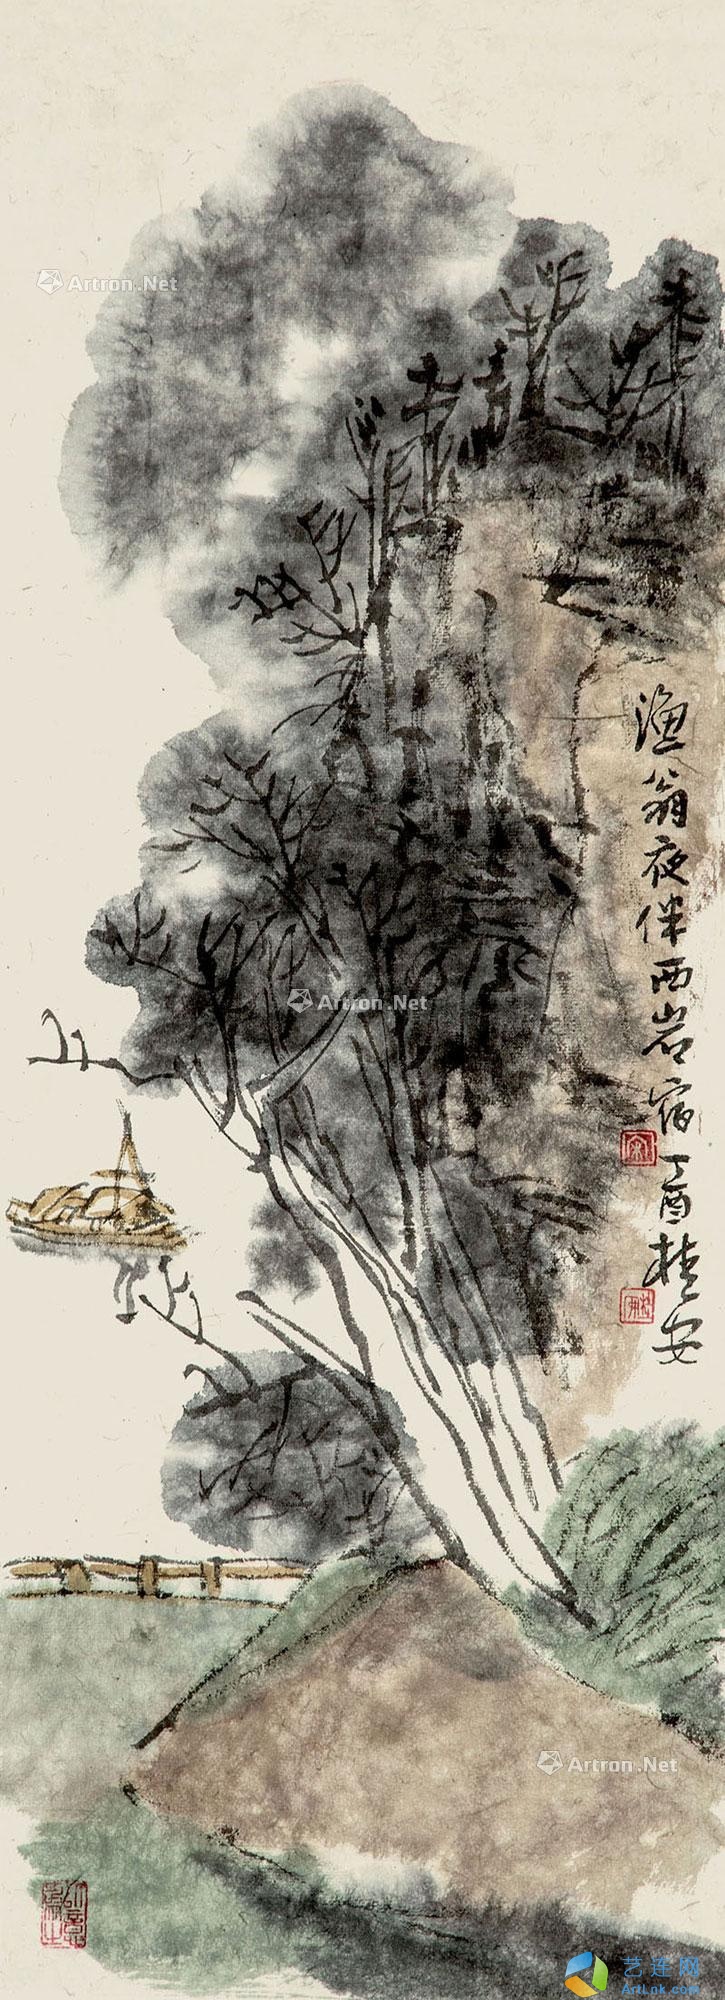 Artron.Net
渔翁夜伴西岩宿丁酉楚安
Artron.Net
Artron.Net
艺连网
ArtLnk.com